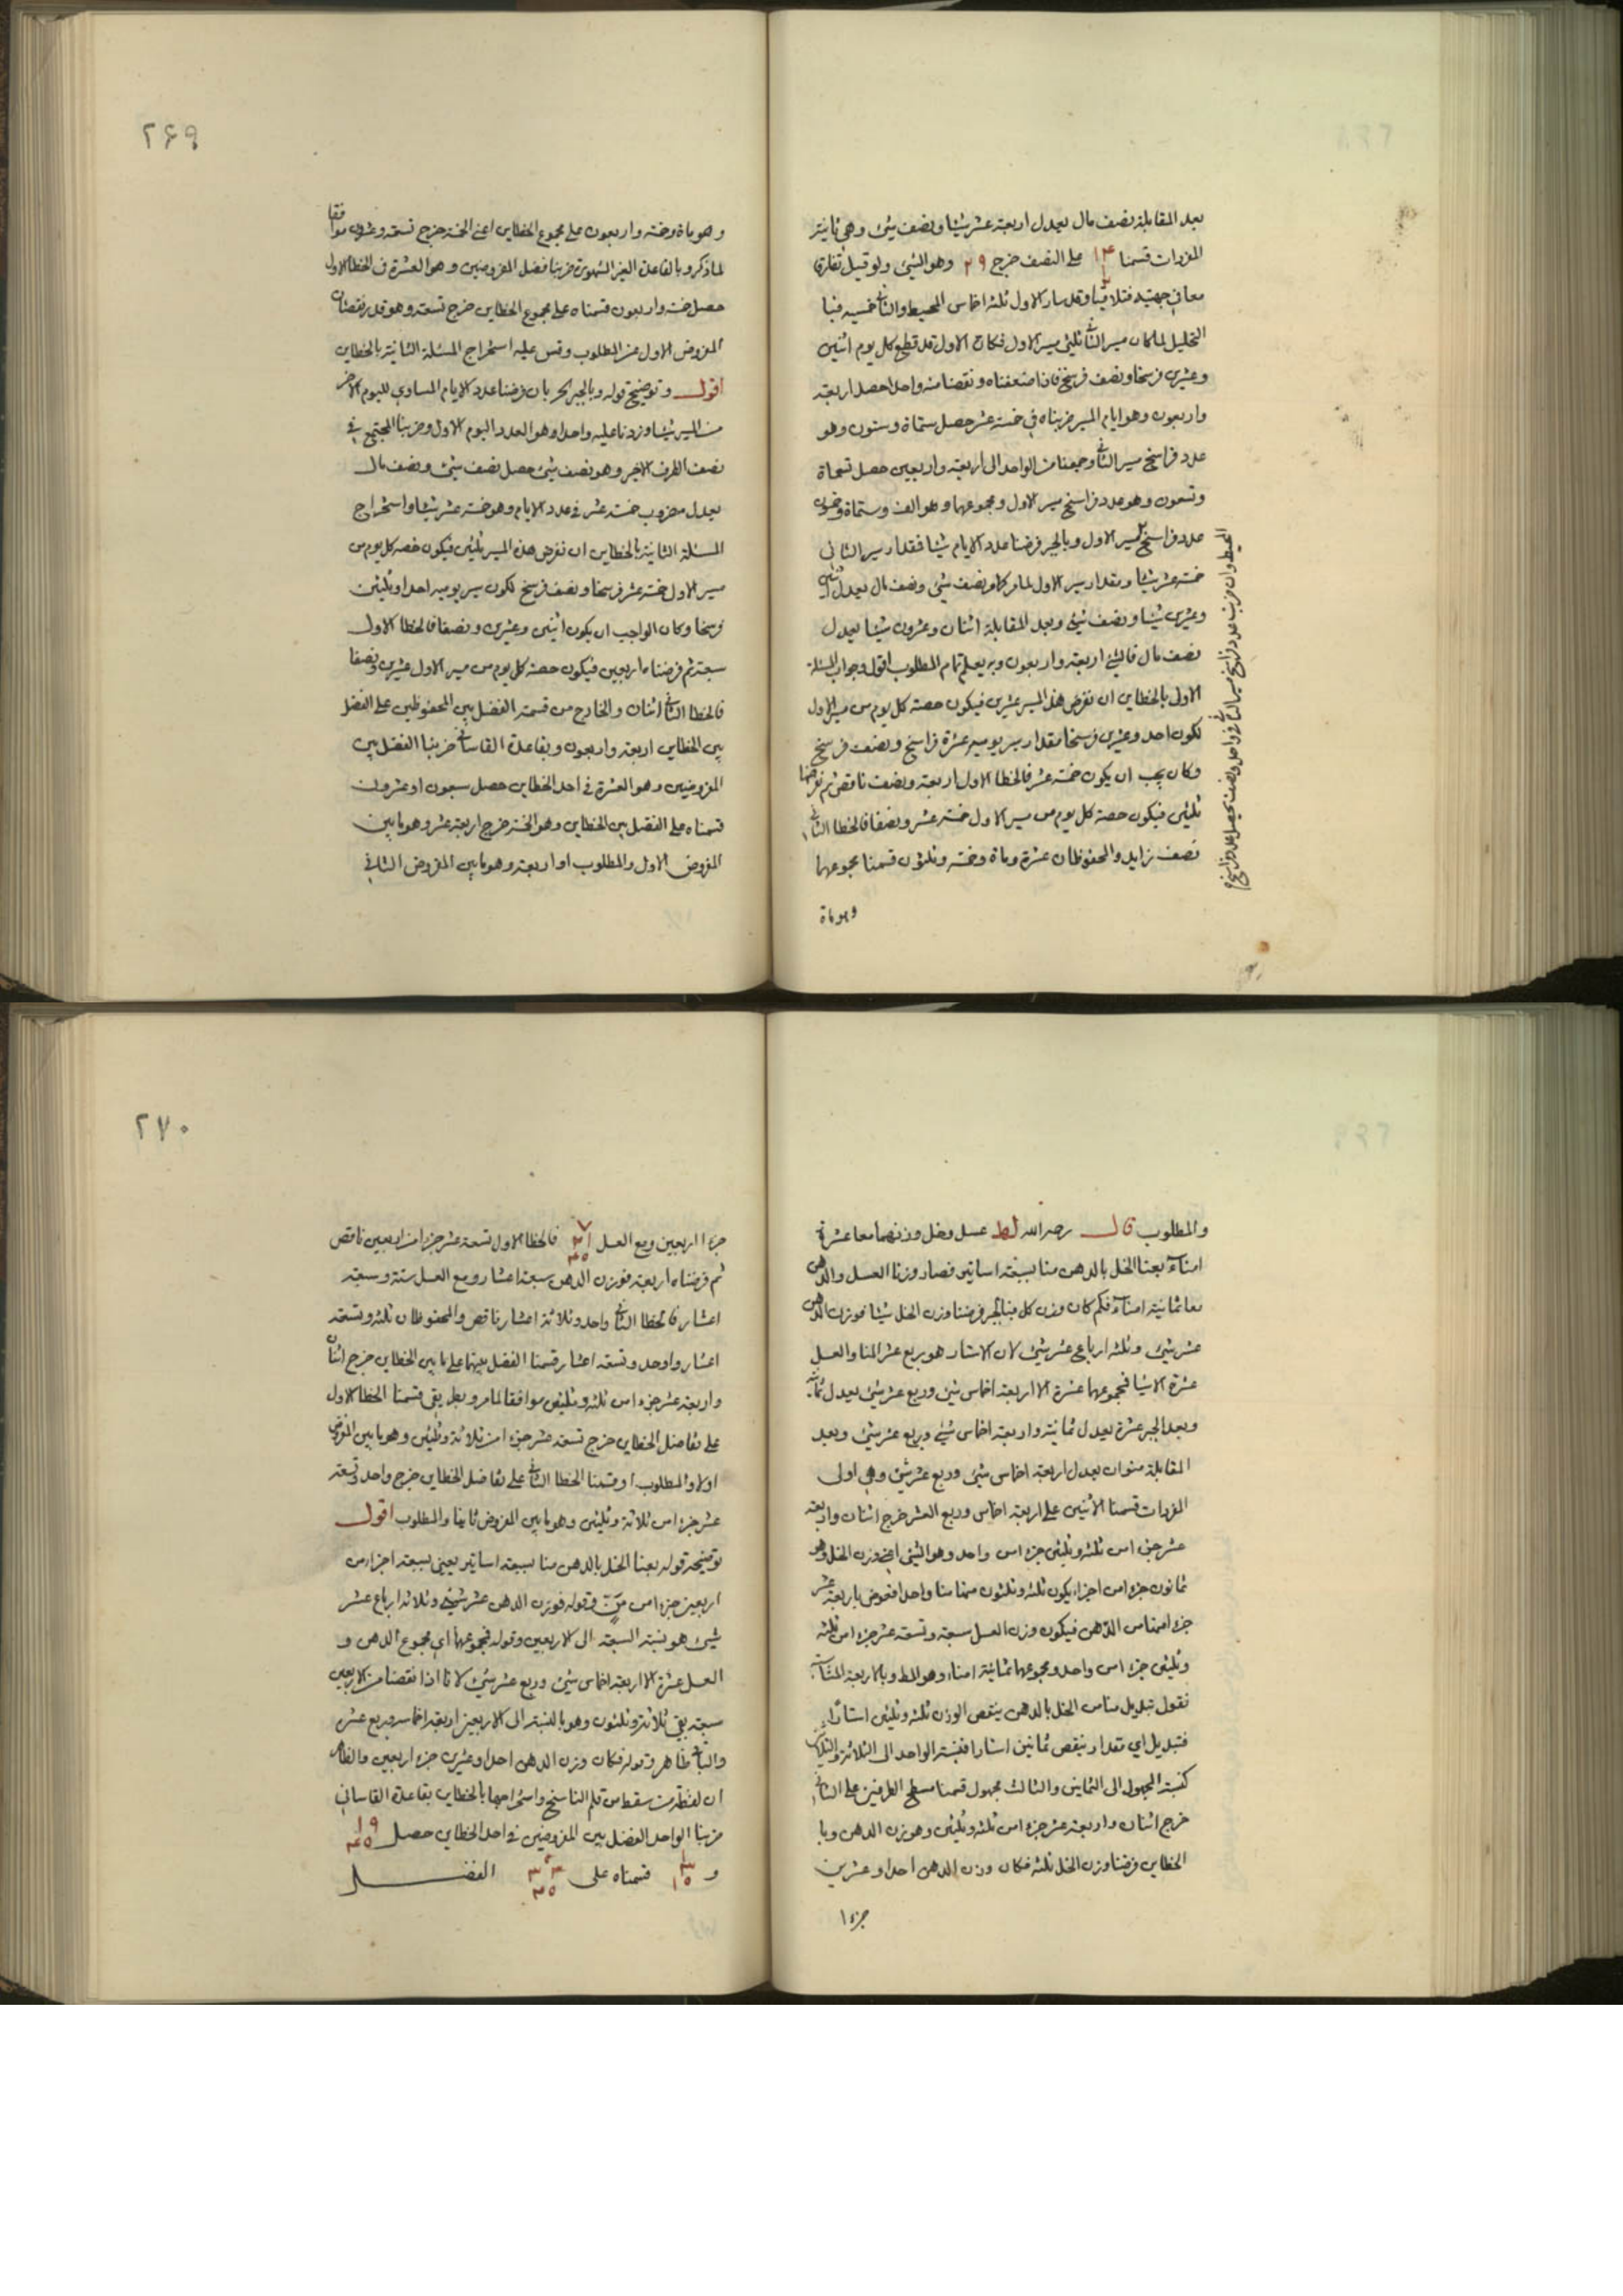 بعد المقابلة نصف مال يعدل اربعة عشر شيئا ونصف شيئ وهي ثانية
المفردات قسمنا ١٤ على النصف خرج ٢٩ وهو الشيئ ولو قيل تفارقا
معا في جهتين فتلاقيا وقد سار الاول ثلثة اخماس المحيط والثاني خمسيه فبا
التحليل لما كان مسير الثاني ثلثي مسير الاول فكان الاول قد قطع كل يوم اثنين
وعشرين فرسخا ونصف فرسخ فاذا ضعفناه ونقصنا منه واحدا حصل اربعة
واربعون وهو ايام المسير ضربناه في خمسة عشر حصل ستماة وستون وهو
عدد فراسخ مسير الثاني وجمعنا من الواحد الى اربعة واربعين حصل تسعماة
وتسعون وهو عدد فراسخ مسير الاول ومجموعهما وهو الف وستماة وخمسون
عدد فراسخ مسير الاول وبالجبر فرضنا عدد الايام شيئا فمقدار سير الثاني
خمسة عشر شيئا ومقدار سير الاول لما مر كما ونصف شيئ ونصف مال يعدل اثنين
وعشرين شيئا ونصف شيئ وبعد المقابلة اثنان وعشرون شيئا يعدل
نصف مال فالشيئ اربعة واربعون وبه يعلم تمام المطلوب اقول وجواب المسئلة
الاولى بالخطاين ان نفرض هذا المسير عشرين فيكون حصة كل يوم من مسير الاول
لكون احد وعشرين فرسخا مقدار سير يوميه عشرة فراسخ ونصف فرسخ
وكان يجب ان يكون خمسة عشر فالخطا الاول اربعة ونصف ناقص ثم نفرضها
ثلثين فيكون حصة كل يوم من مسير الاول خمسة عشر ونصفا فالخطا الثاني
نصف زايد والمحفوظان عشرة وماة وخمسة وثلثون قسمنا مجموعهما
وهو ماة
٢٦٩
وهو ماة وخمسة واربعون على مجموع الخطاين اعني الخمسة خرج تسعة وعشرون موافقا
لما ذكر وبالقاعدة الغير المشهورة ضربنا فضل المفروضين وهو العشرة في الخطا الاول
حصل خمسة واربعون قسمناه على مجموع الخطاين خرج تسعة وهو قدر نقصان
المفروض الاول عن المطلوب وقس عليه استخراج المسئلة الثانية بالخطاين
اقول وتوضيح قوله وبالجبر الخ بان فرضنا عدد الايام المساوي لليوم الاخر
من المسير شيئا وزدنا عليه واحدا وهو العدد اليوم الاول وضربنا المجتمع في
نصف الطرف الاخير وهو نصف شيئ حصل نصف شيئ ونصف مال
يعدل مضروب خمسة عشر في عدد الايام وهو خمسة عشر شيئا واستخراج
المسئلة الثانية بالخطاين ان نفرض هذا المسير ثلثين فيكون حصة كل يوم من
مسير الاول خمسة عشر فرسخا ونصف فرسخ لكون سير يوميه احدا وثلثين
فرسخا وكان الواجب ان يكون اثنين وعشرين ونصفا فالخطا الاول
سبعة ثم فرضناه اربعين فيكون حصة كل يوم من مسير الاول عشرين ونصفا
فالخطا الثاني اثنان والخارج من قسمة الفضل بين المحفوظين على الفضل
بين الخطاين اربعة واربعون وبقاعدة القاساني ضربنا الفضل بين
المفروضين وهو العشرة في احد الخطاين حصل سبعون او عشرون
قسمناه على الفضل بين الخطاين وهو الخمسة خرج اربعة عشر وهو ما بين
المفروض الاول والمطلوب او اربعة وهو ما بين المفروض الثاني
والمطلوب قال رحمه الله لط عسل وخل وزنهما معا عشرة
امناء بعنا الخل بالدهن منا بسبعة اساتير فصار وزنا العسل والدهن
معا ثمانية امناء فكم كان وزن كل فبالجبر فرضنا وزن الخل شيئا فوزن الدهن
عشر شيئ وثلثة ارباع عشر شيئ لان الاستار هو ربع عشر المنا والعسل
عشرة الا شيئا فمجموعهما عشرة الا اربعة اخماس شيئ وربع عشر شيئ يعدل ثمانية
وبعد الجبر عشرة يعدل ثمانية واربعة اخماس شيئ وربع عشر شيئ وبعد
المقابلة منوان يعدل اربعة اخماس شيئ وربع عشر شيئ وهي اولى
المفردات قسمنا الاثنين على اربعة اخماس وربع العشر خرج اثنان واربعة
عشر جزء امن ثلثة وثلثين جزء امن واحد وهو الشيئ اعني وزن الخل وهو
ثمانون جزء امن اجزاء يكون ثلثة وثلثون منها منا واحدا فعوض باربعة عشر
جزء امنها من الدهن فيكون وزن العسل سبعة وتسعة عشر جزء امن ثلثة
وثلثين جزء امن واحد ومجموعهما ثمانية امناء وهو المط وبالاربعة المتناسبة
نقول تبديل منا من الخل بالدهن ينقص الوزن ثلثة وثلثين استارا
فتبديل اي مقدار ينقص ثمانين استارا فنسبة الواحد الى الثلاثة والثلاثين
كنسبة المجهول الى الثمانين والثالث مجهول قسمنا مسطح الطرفين على الثاني
خرج اثنان واربعة عشر جزء امن ثلثة وثلثين وهو وزن الدهن وبا
الخطاين فرضنا وزن الخل ثلثة فكان وزن الدهن احدا وعشرين
جزء ا
٢٧٠
جزء ا اربعين ومع العسل ٧ ٢١ ٤٠ فالخطا الاول تسعة عشر جزء امن اربعين ناقص
ثم فرضناه اربعة فوزن الدهن سبعة اعشار ومع العسل ستة وسبعة
اعشار فالخطا الثاني واحد وثلاثة اعشار ناقص والمحفوظان ثلثة وتسعة
اعشار واوحد وتسعة اعشار قسمنا الفضل بينهما على ما بين الخطاين خرج اثنان
واربعة عشر جزء امن ثلثة وثلثين موافقا لما مر وبطريق قسمنا الخطا الاول
على تفاضل الخطاين خرج تسعة عشر جزء امن ثلاثة وثلثين وهو ما بين المفروض
اولا والمطلوب او قسمنا الخطا الثاني على تفاضل الخطاين خرج واحد وتسعة
عشر جزء امن ثلاثة وثلثين وهو ما بين المفروض ثانيا والمطلوب اقول
توضيحه قوله بعنا الخل بالدهن منا بسبعة اساتير يعني بسبعة اجزاء من
اربعين جزء امن من وقوله فوزن الدهن عشر شيئ وثلاثة ارباع عشر
شيئ هو نسبة السبعة الى الاربعين وقوله فمجموعهما اي مجموع الدهن و
العسل عشرة الا اربعة اخماس شيئ وربع عشر شيئ لانا اذا نقصنا من الاربعين
سبعة بقي ثلاثة وثلثون وهو بالنسبة الى الاربعين اربعة اخماسه وربع عشره
والباقي ظاهر وقوله فكان وزن الدهن احدا وعشرين جزء اربعين والظاهر
ان لفظة من سقط من قلم الناسخ واستخراجها بالخطاين بقاعدة القاساني
ضربنا الواحد الفضل بين المفروضين في احد الخطاين حصل ١٩ ٤٠
و ١ ٣ ١٠ قسمناه على ٣٣ ٤٠ الفضل